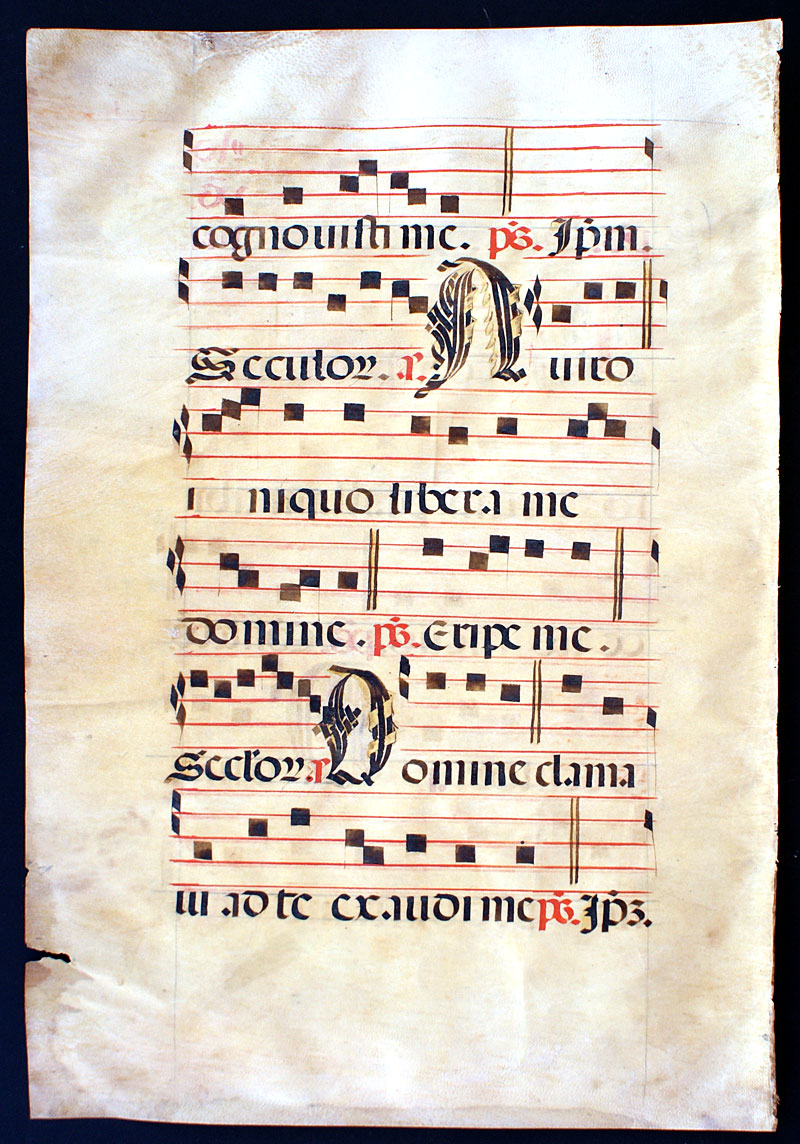 cognouisti me. ps. Ipm.
Seculor. a. A uiro
iniquo libera me
domine. ps. Eripe me.
Seclor. a. Domine clama
ui ad te exaudi me ps. Ips.